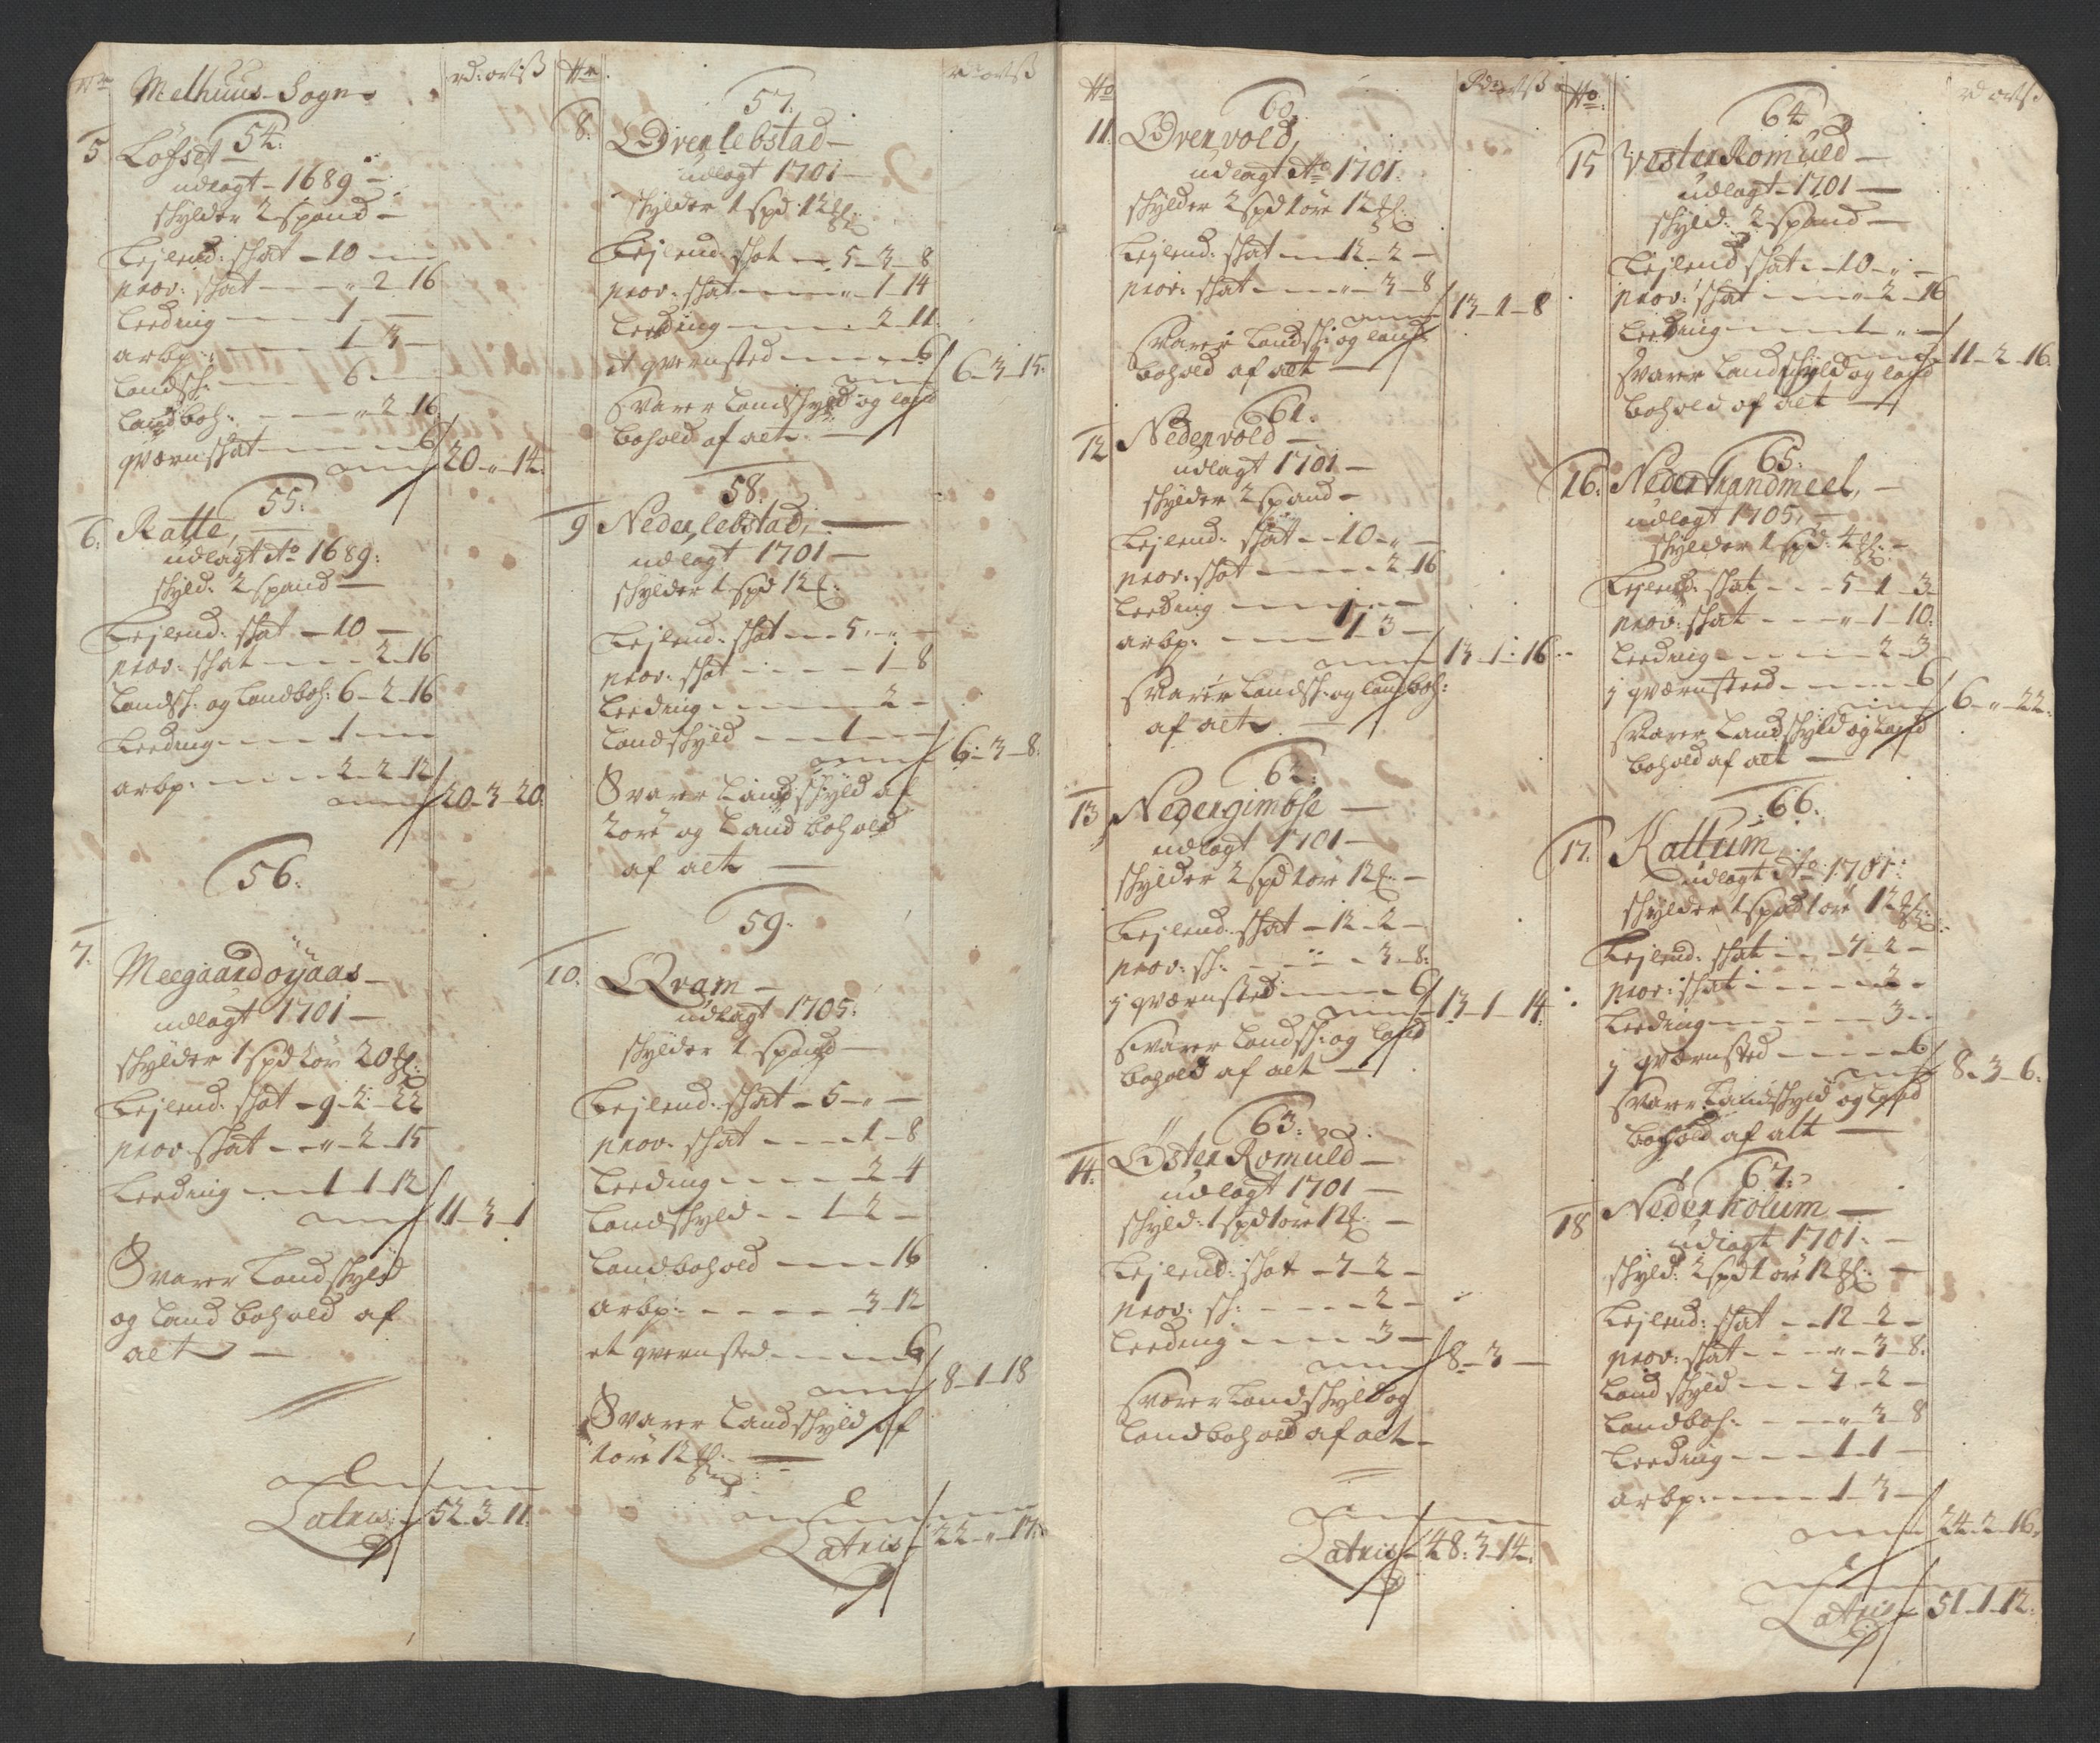 No
Melhuus Sogn
rd: ort ß
5
54:
Løfset
udlagt 1689
skylder 2 spand
Lejlend: skat 10
prov: skat " 2 16
Leeding 1
arbp: 1 3
Landsk: 6
Landboh: " 2 16
qværnskat 6
20 " 14:
55:
6: Ratte,
udlagt Ao 1689:
skyld: 2 spand
Lejlend: skat 10
prov: skat 2 16
Landsk: og Landboh: 6 2 16
Leeding 1
arbp: 2 2 12
20 3 20
56:
7: Meegaard Øÿaas
udlagt 1701
skylder 1 spd 2 ør 20
Lejlend: skat 9 2 22
prov skat " 2 15
Leeding 1 1 12
11 3 1
Svarer Landskyld
og Land bohold af
alt
Lateris 52 3 11:
No
rd ort ß
57:
8: Øvenlebstad
udlagt 1701
skylder 1 spd: 12
Lejlend: skat 5 3 8
prov: skat " 1 14
Leeding 2 11
et qvernsted 6
6 3 15:
Svarer Landskyld og Land
bohold af alt
58:
9 Neder lebstad,
udlagt 1701
skylder 1 spd 12
Lejlend: skat 5 "
prov: skat 1 8
Leeding 2
Landskyld 1
6 3 8:
Svarer Landskyld af
2 øre og Land bohold
af alt
59:
10: Qvam
udlagt 1705:
skylder 1 spand
Lejlend: skat 5 "
prov: skat 1 8
Leeding 2 4
Landskyld 1 2
Landbohold 16
arbp: 3 12
et qvernsted 6
8 1 18
Svarer Landskyld af
1 øre 12
Lateris 22 " 17:
No
Rd ort ß
60:
11: Øvenvold,
udlagt Ao 1701:
skylder 2 spd 1 øre 12
Lejlend: skat 12 2
prov: skat " 3 8
13 1 8
Svarer Landsk: og Land
bohold af alt
61:
12 Nedenvold
udlagt 1701
skylder 2 spand
Lejlend: skat 10 "
prov: skat 2 16
Leeding 1
arbp: 1 3
13 1 16
Svarer Landsk: og Landboh:
af alt
62:
13 Nedergimbse
udlagt 1701
skylder 2 spd 1 øre 12
Lejlend: skat 12 2
prov: sk: 3 8:
j qværnsted 6
13 1 14:
Svarer Landsk: og Land
bohold af alt
63:
14: Øster Romuld
udlagt 1701
skyld: 1 spd 1 øre 12
Lejlend: skat 7 2
prov: sk: 2
Leeding 3
8 3
Svarer Landskyld og
Landbohold af alt
Lateris 48: 3 14:
No:
rd ort ß
64
15 Vester Romuld
udlagt 1701
skyld: 2 spand
Lejlend skat 10 "
prov: skat " 2 16
Leeding 1 "
11 2 16:
Svarer Landskyld og Land
bohold af alt
65:
16: Neder trandmeel,
udlagt 1705,
skylder 1 spd: 4
Lejlend: skat 5 1 3
prov: skat " 1 10:
Leeding 2 3
j qværnsted 6
6 " 22:
Svarer Landskyld og Land
bohold af alt
66:
17: Kallum
udlagt Ao 1701:
skylder 1 spd 1 øre 12
Lejlend: skat 7 2
prov: skat 2
Leeding 3
j qværnsted 6
8 3 6:
Svarer Landskyld og Land
bohold af alt
67:
18 Neder Kolum
udlagt 1701:
skyld: 2 spd 1 øre 12
Lejlend: skat 12 2
prov: skat " 3 8:
Landskyld 7 2
Landboh: " 3 8
Leeding 1 1
arbp: 1 3
24 2 16
Lateris 51 1 12: